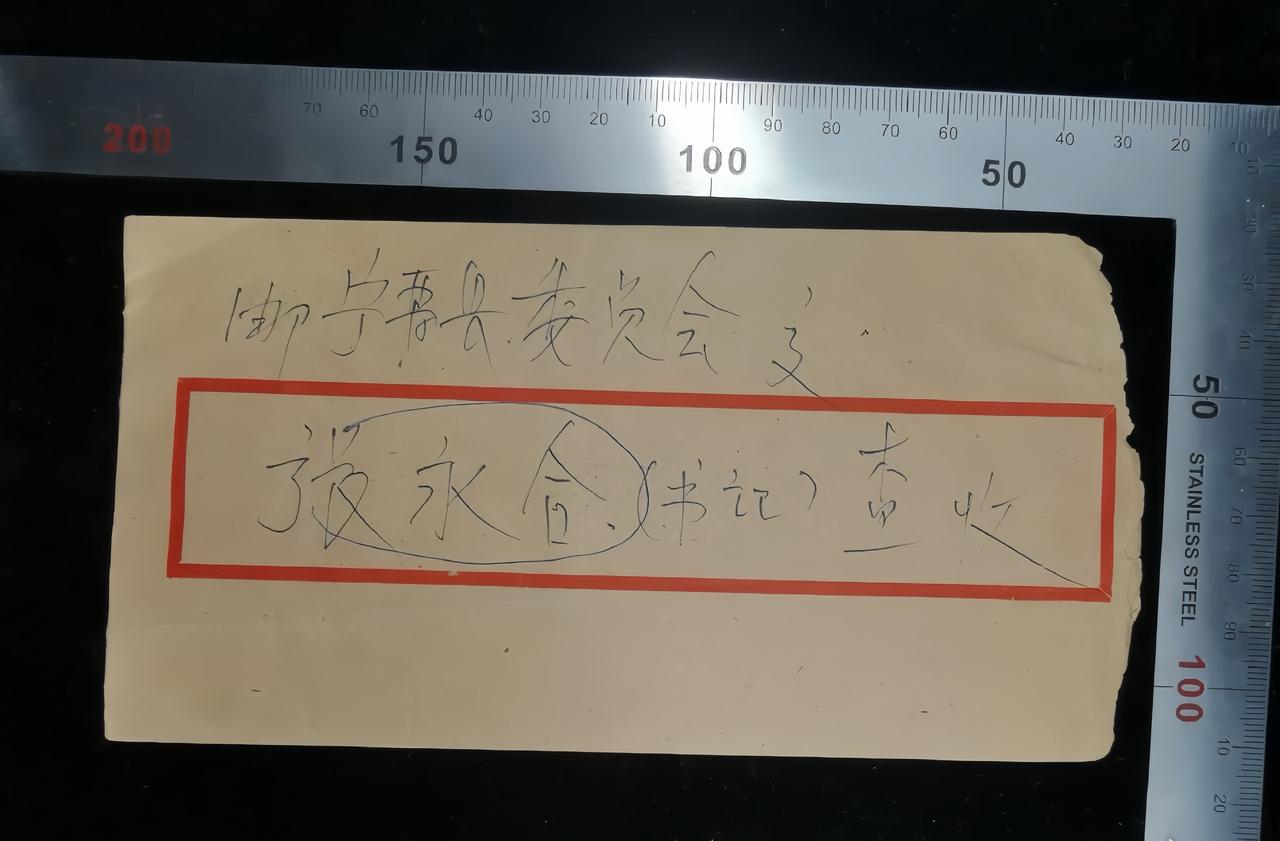 70 60 40 30 20 10 90 80 70 60 40 30 20 10
200 150 100 50
邮宁晋县委员会 交
张永合(书记)查收
10 20 30 40 60 70 80 90 10 20
50 STAINLESS STEEL 100